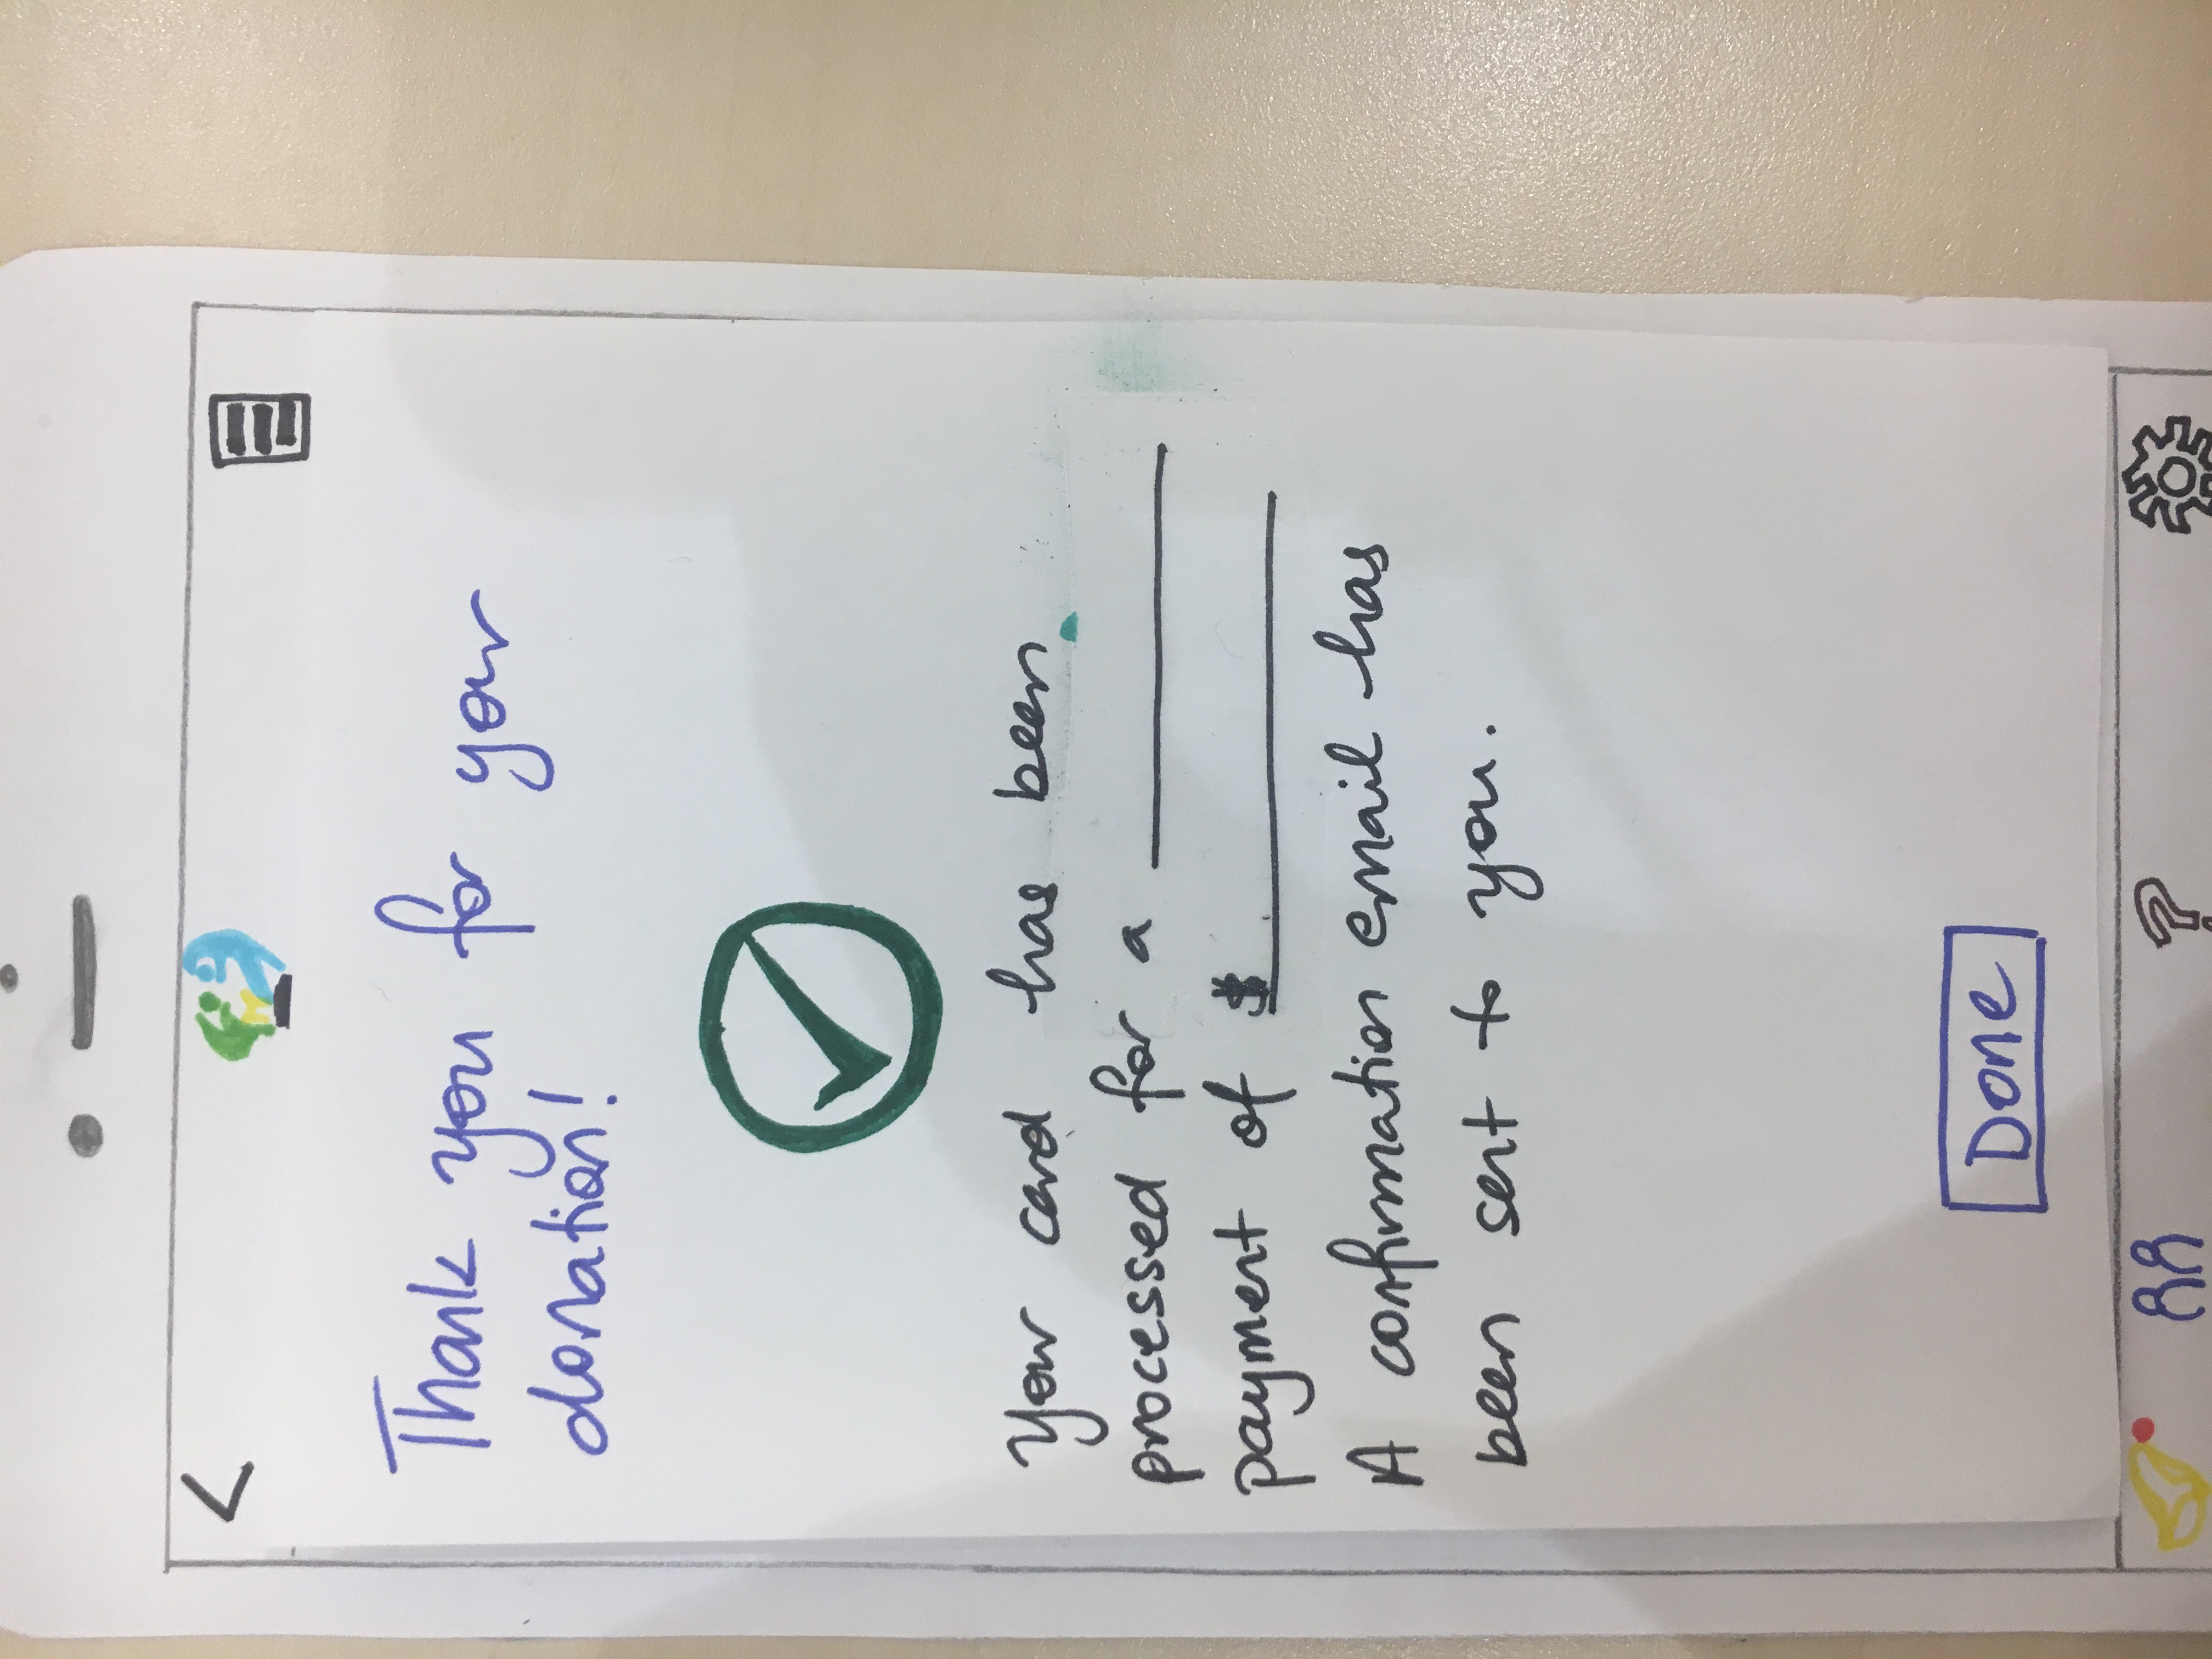 Thank you for your
donation!
Your card has been
processed for a
payment of $
A confirmation email has
been sent to you.
Done
?